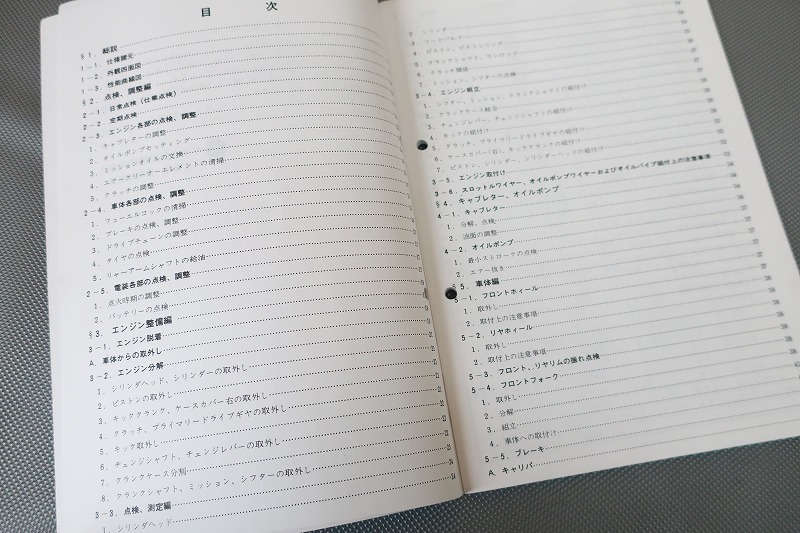 目 次
§1. 総説
1-1. 仕様諸元
1-2. 外観四面図
1-3. 性能曲線図
§2. 点検、調整編
2-1. 日常点検(仕業点検)
2-2. 定期点検
2-3. エンジン各部の点検、調整
1. キャブレターの調整
2. オイルポンプセッティング
3. ミッションオイルの交換
4. エアークリーナーエレメントの清掃
5. クラッチの調整
2-4. 車体各部の点検、調整
1. フューエルコックの清掃
2. ブレーキの点検、調整
3. ドライブチェーンの調整
4. タイヤの点検
5. リャーアームシャフトの給油
2-5. 電装各部の点検、調整
1. 点火時期の調整
2. バッテリーの点検
§3. エンジン整備編
3-1. エンジン脱着
A. 車体からの取外し
3-2. エンジン分解
1. シリンダヘッド、シリンダーの取外し
2. ピストンの取外し
3. キッククランク、ケースカバー右の取外し
4. クラッチ、プライマリードライブギヤの取外し
5. キック取外し
6. チェンジシャフト、チェンジレバーの取外し
7. クランクケース分割
8. クランクシャフト、ミッション、シフターの取外し
3-3. 点検、測定編
1. シリンダヘッド
2. シリンダ
3. リードバルブ
4. ピストン、ピストンリング
5. クランクシャフト、コンロッド
6. クラッチ関係
7. ミッション、シフターの点検
3-4. エンジン組立
1. シフター、ミッション、クランクシャフトの組付け
2. クランクケース結合
3. チェンジレバー、チェンジシャフトの組付け
4. キックの組付け
5. クラッチ、プライマリードライブギヤの組付け
6. ケースカバー(右)、キッククランクの組付け
7. ピストン、シリンダー、シリンダーヘッドの組付け
3-5. エンジン取付け
3-6. スロットルワイヤー、オイルポンプワイヤーおよびオイルパイプ組付上の注意事項
§4. キャブレター、オイルポンプ
4-1. キャブレター
1. 分解、点検
2. 油面の調整
4-2. オイルポンプ
1. 最小ストロークの点検
2. エアー抜き
§5. 車体編
5-1. フロントホィール
1. 取外し
2. 取付上の注意事項
5-2. リヤホィール
1. 取外し
2. 取付上の注意事項
5-3. フロント、リヤリムの振れ点検
5-4. フロントフォーク
1. 取外し
2. 分解
3. 組立
4. 車体への取付け
5-5. ブレーキ
A. キャリパ